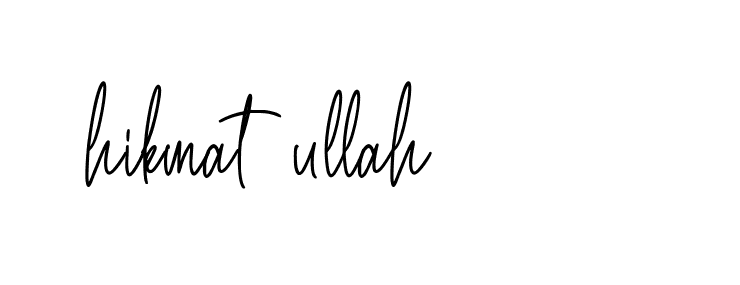 hikmat ullah